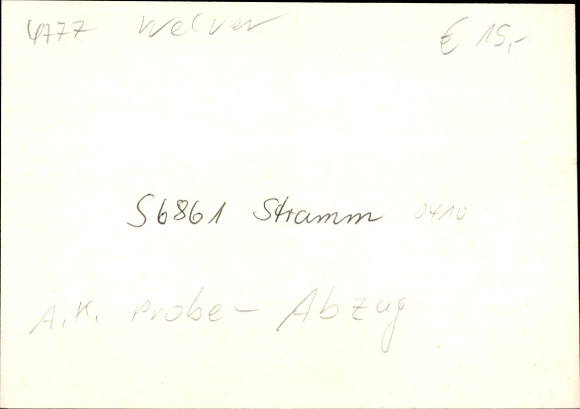 4777 Welver € 15,-
S6861 Stramm 0410
A.K. Probe - Abzug